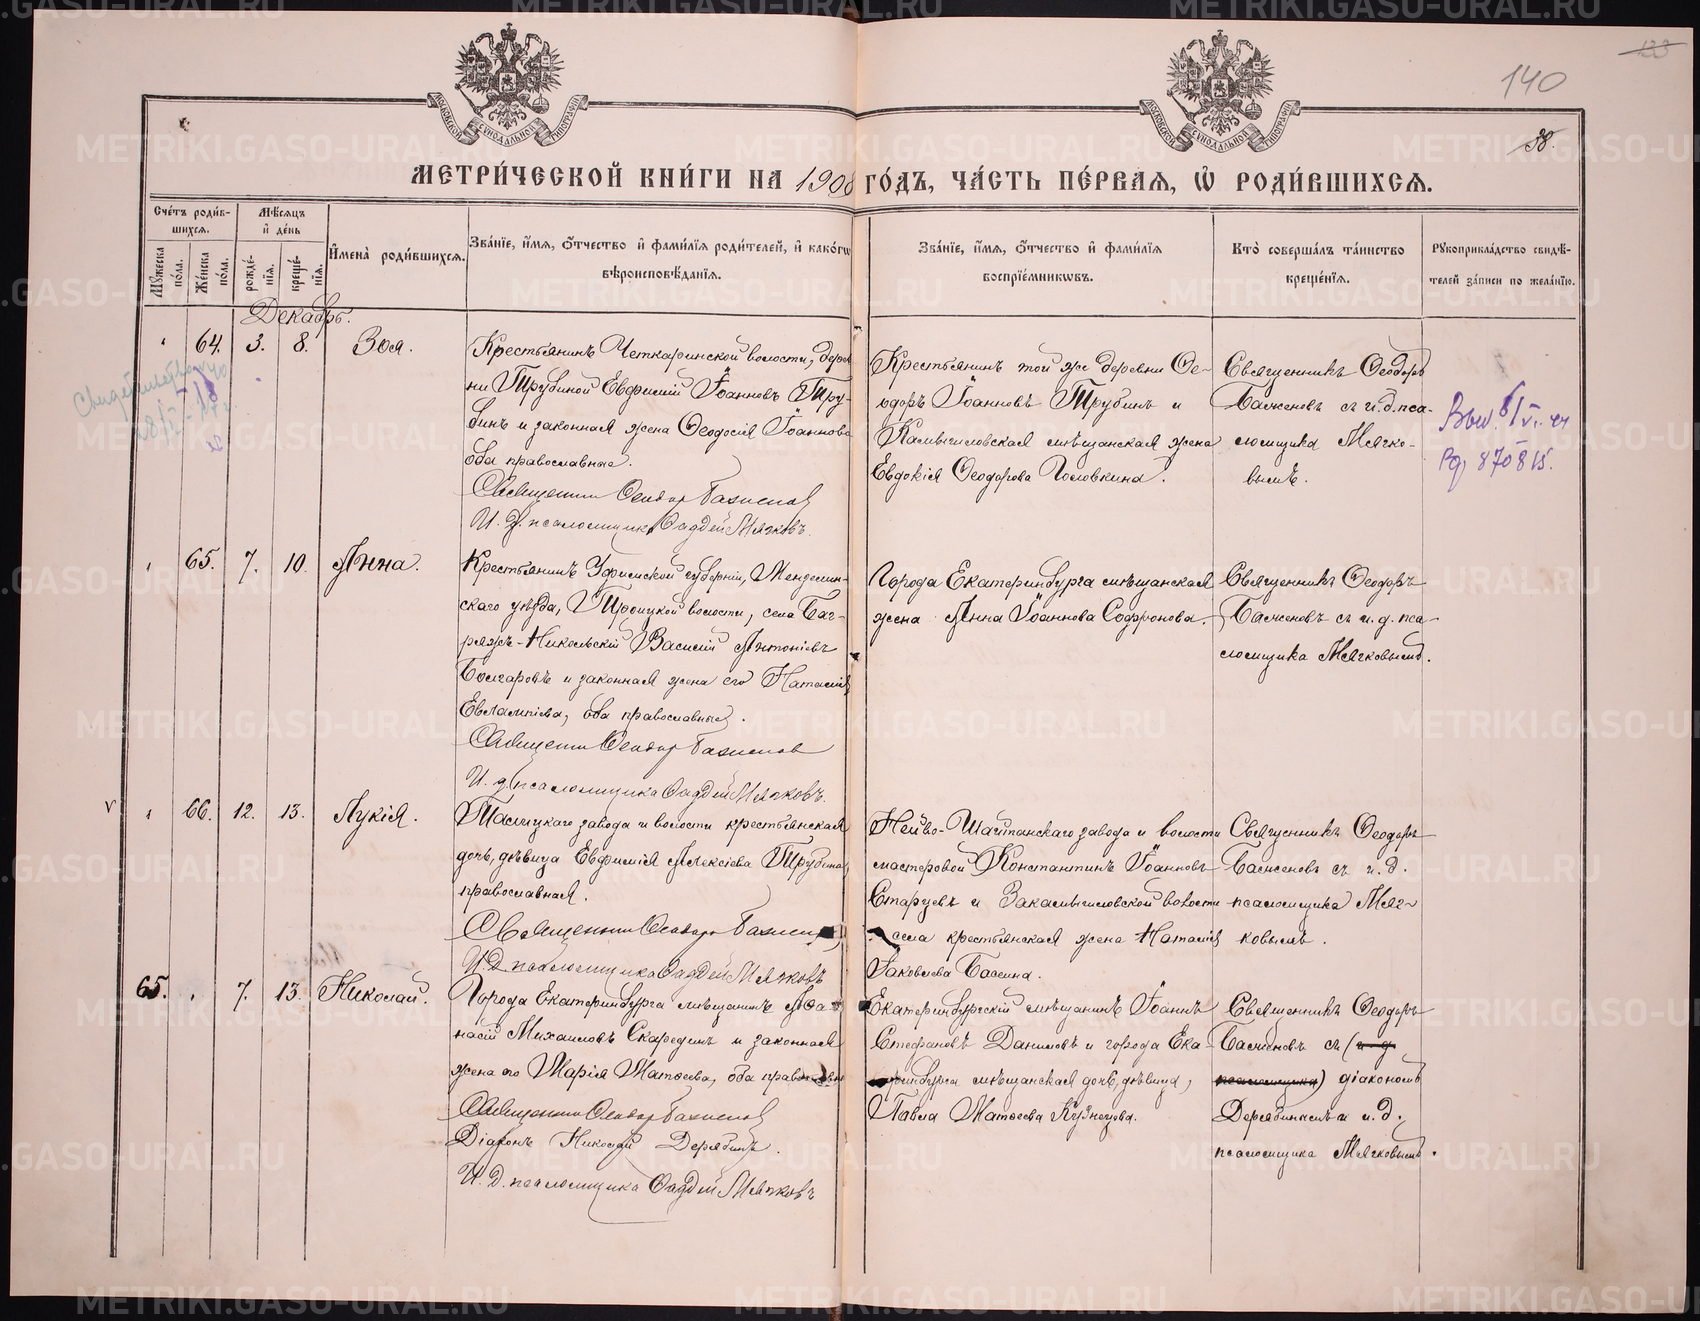 140
38.
МЕТРИ́ЧЕСКОЙ КНИ́ГИ НА 1908 ГО́ДЪ, ЧА́СТЬ ПЕ́РВАЯ, Ѡ҆ РОДИ́ВШИХСЯ.
Сче́тъ роди́вшихся.
Мꙋ́жеска по́ла.
Же́нска по́ла.
Мѣ́сяцъ и҆ де́нь
рожде́нїя.
креще́нїя.
И҆мена̀ роди́вшихся.
Зва́нїе, и҆́мя, ѻ҆́тчество и҆ фами́лїя роди́телей, и҆ како́гѡ
вѣроисповѣ́данїя.
Зва́нїе, и҆́мя, ѻ҆́тчество и҆ фами́лїя
воспрїе́мникѡвъ.
Кто̀ соверша́лъ та́инство
креще́нїя.
Рꙋкоприкла́дство свидѣ́-
телей за́писи по жела́нїю.
Декабрь.
64. 3. 8. Зоя.
Крестьянинъ Четкаринской волости, дерев-
ни Трубиной Евфимій Іоанновъ Тру-
бинъ и законная жена Ѳеодосія Іоаннова
оба православные.
Священникъ Ѳеодоръ Баженовъ
И. д. псаломщика Ѳаддей Мягковъ.
Крестьянинъ той же деревни Ѳе-
одоръ Іоанновъ Трубинъ и
Камышловская мѣщанская жена
Евдокія Ѳеодорова Головкина.
Священникъ Ѳеодоръ
Баженовъ съ и. д. пса-
ломщика Мягко-
вымъ.
65. 7. 10. Анна.
Крестьянинъ Уфимской губерніи, Мензелин-
скаго уѣзда, Троицкой волости, села Баг-
ряжъ-Никольскій Василій Антоніевъ
Болгаровъ и законная жена его Наталія
Евлампіева, оба православные.
Священникъ Ѳеодоръ Баженовъ
И. д. псаломщика Ѳаддей Мягковъ.
Города Екатеринбурга мѣщанская
жена Анна Іоаннова Софронова.
Священникъ Ѳеодоръ
Баженовъ съ и. д. пса-
ломщика Мягковымъ.
66. 12. 13. Лукія.
Талицкаго завода и волости крестьянская
дочь, дѣвица Евфимія Алексіева Трубина,
православная.
Священникъ Ѳеодоръ Баженовъ
И. д. псаломщика Ѳаддей Мягковъ
Нейво-Шайтанскаго завода и волости
мастеровой Константинъ Іоанновъ
Старцевъ и Закамышловской волости
села крестьянская жена Наталія
Іаковлева Басина.
Священникъ Ѳеодоръ
Баженовъ съ и. д.
псаломщика Мяг-
ковымъ.
65. 7. 13. Николай.
Города Екатеринбурга мѣщанинъ Аѳа-
насій Михаиловъ Скарединъ и законная
жена его Марія Матѳеева, оба православные
Священникъ Ѳеодоръ Баженовъ
Діаконъ Николай Дерябинъ.
И. д. псаломщика Ѳаддей Мягковъ
Екатеринбургскій мѣщанинъ Іоаннъ
Стефановъ Даниловъ и города Ека-
теринбурга мѣщанская дочь, дѣвица,
Павла Матѳеева Кузнецова.
Священникъ Ѳеодоръ
Баженовъ съ (и. д.
псаломщика) діакономъ
Дерябинымъ и и. д.
псаломщика Мягковымъ.